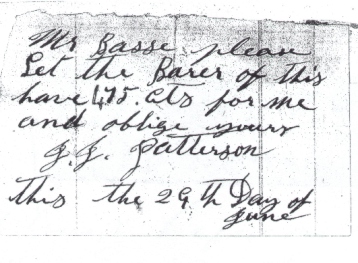 Mr Basse please
Let the Barer of this
have 475. cts for me
and oblige yours
J. J. Patterson
this the 29th Day of
June